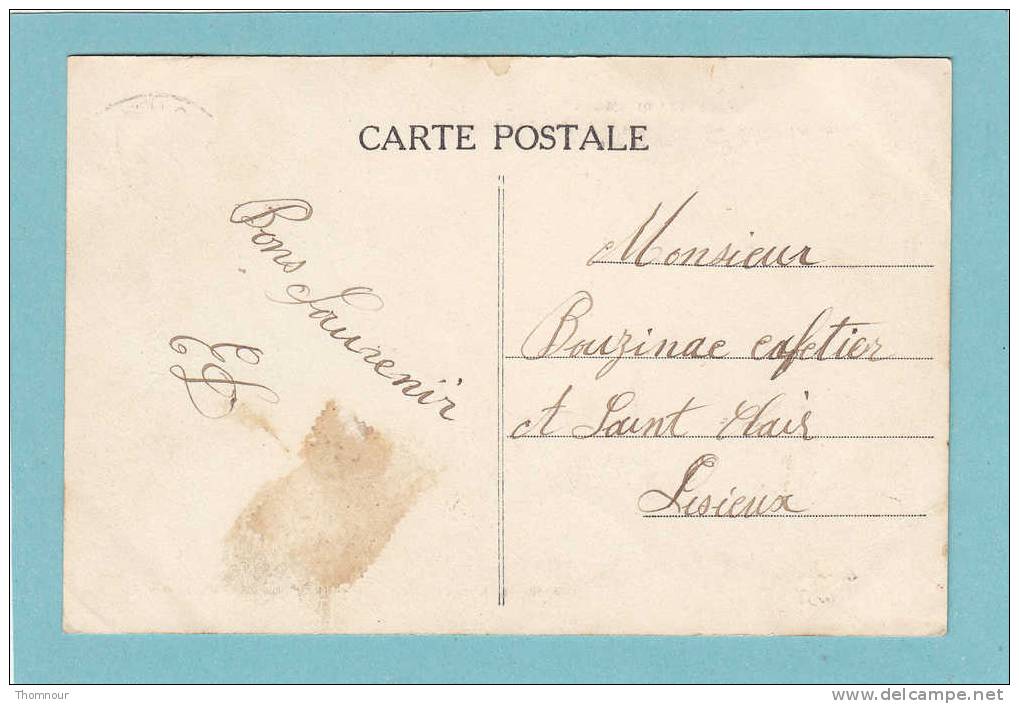 CARTE POSTALE
Bons Souvenir
ED
Monsieur
Bouzinac cafetier
A Saint Clair
Lisieux
Thomnour
www.delcampe.net